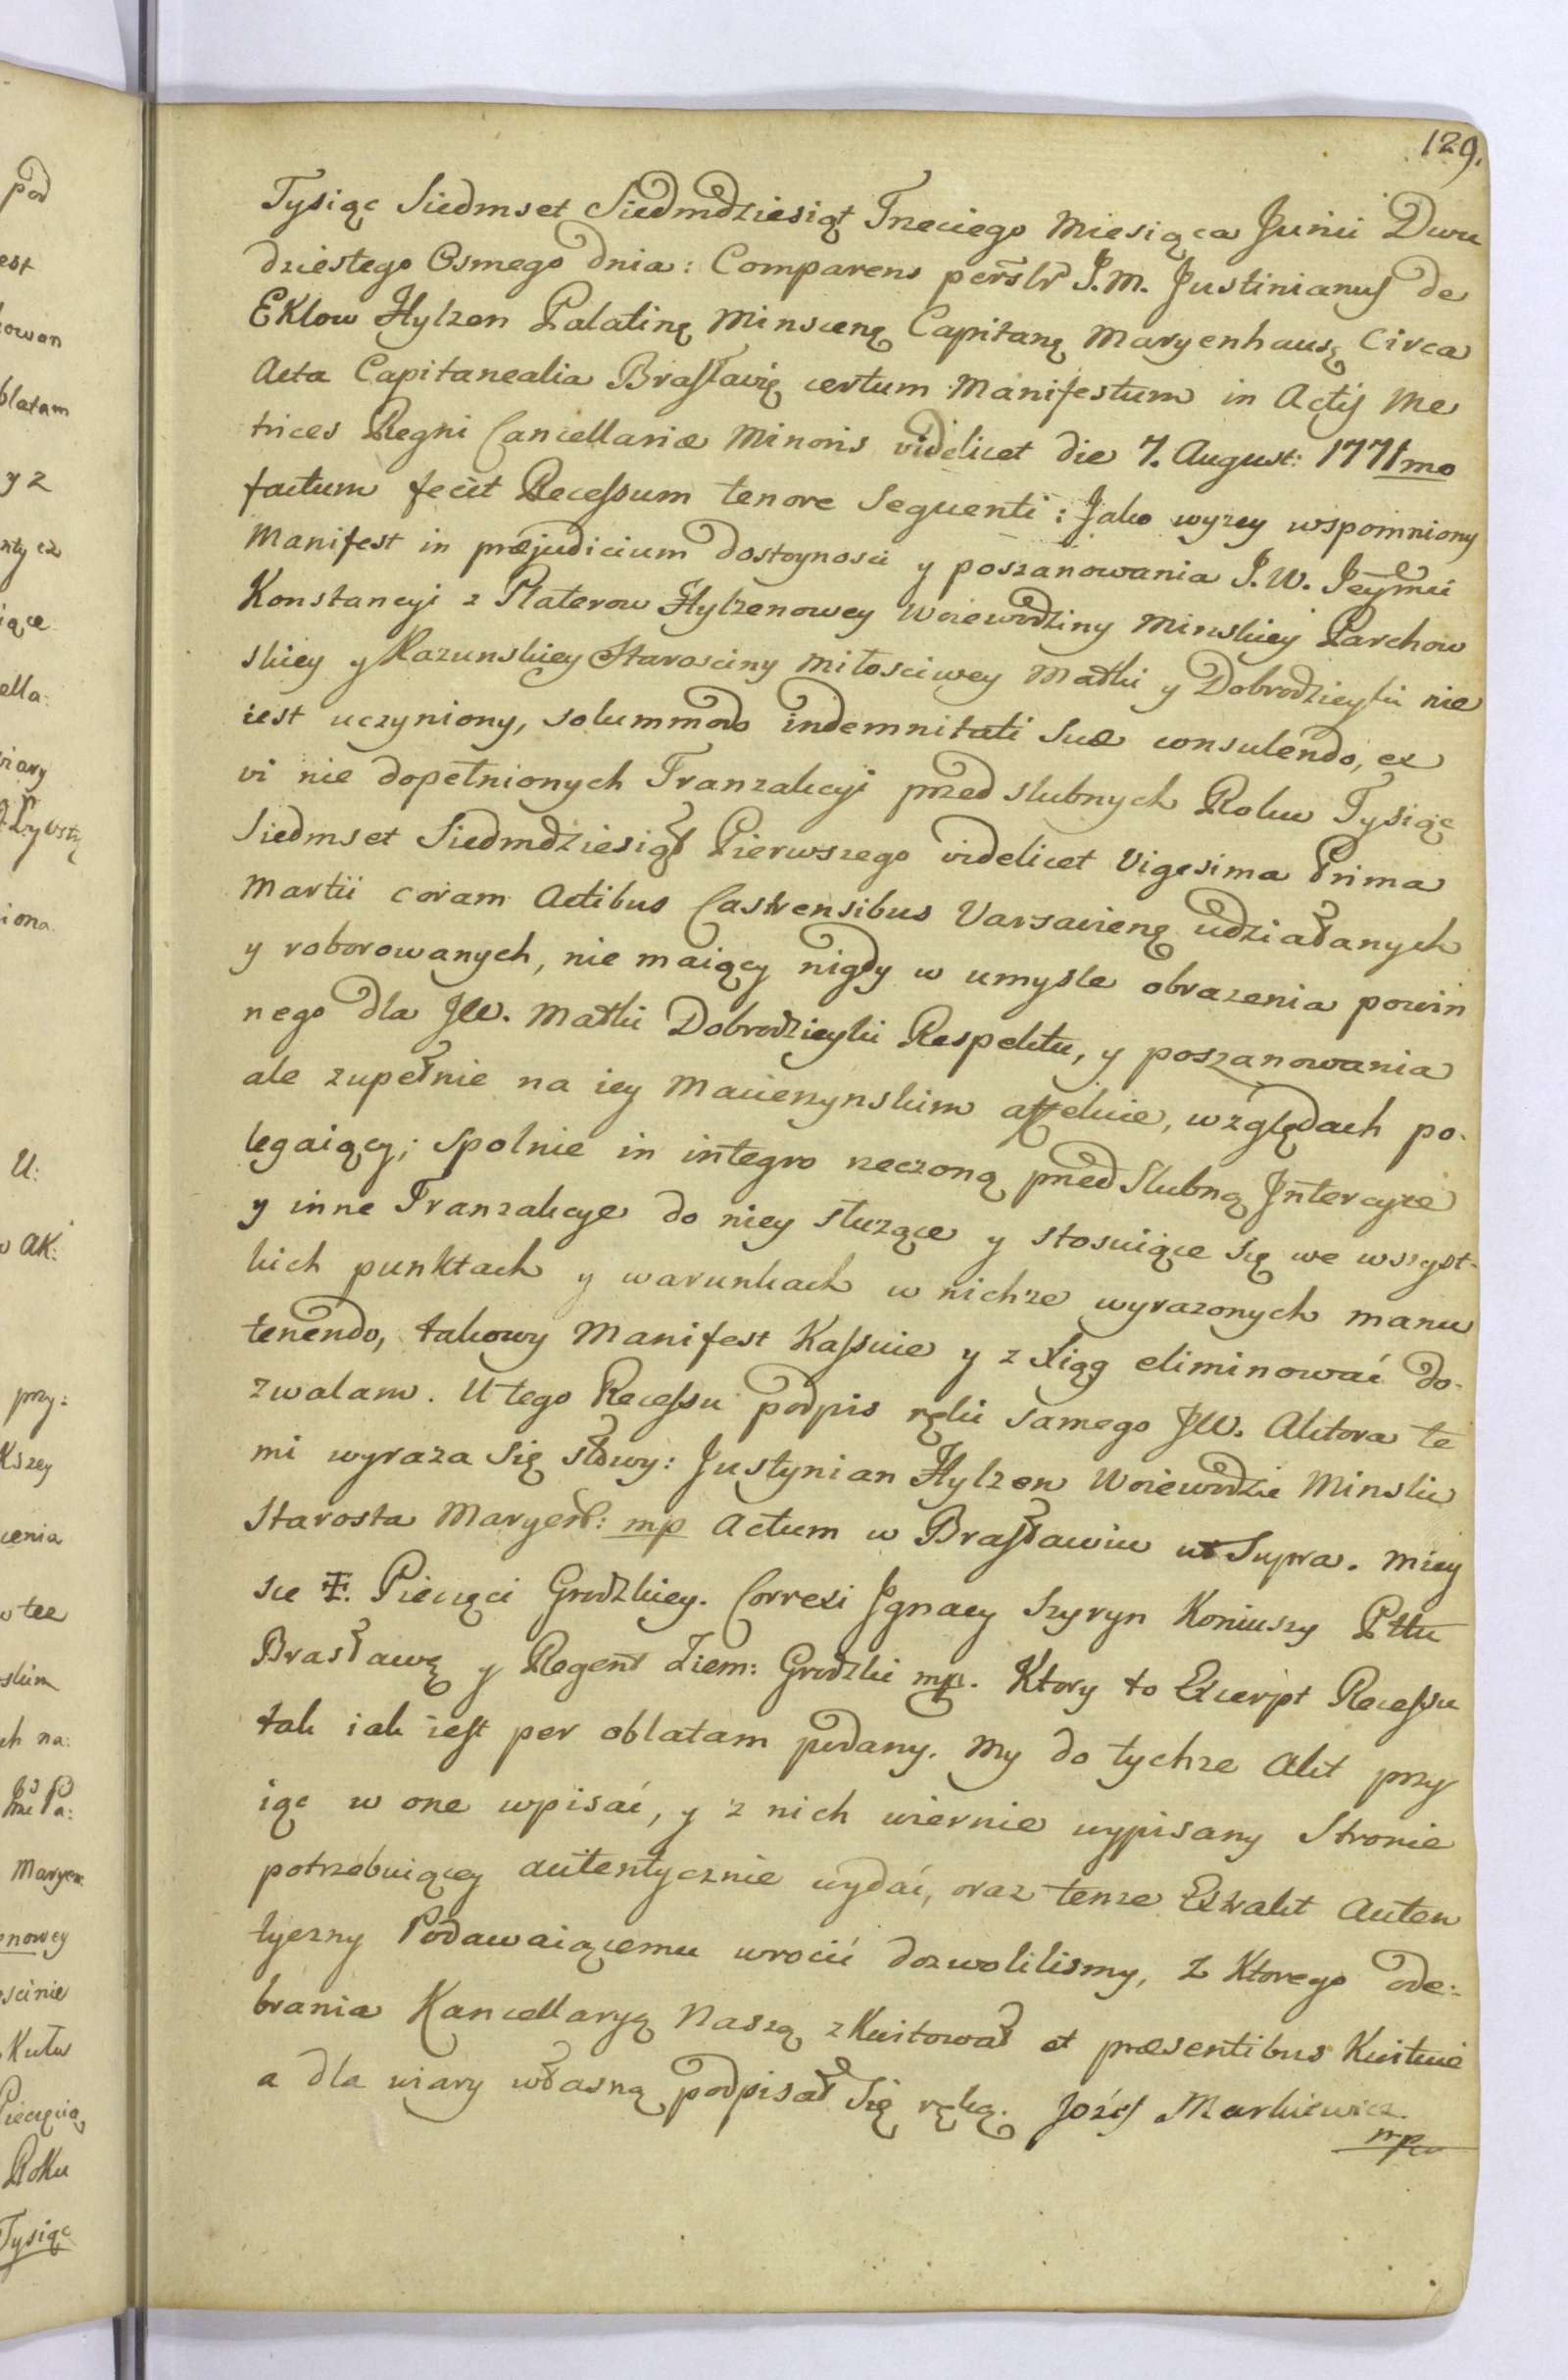 129.
Tysiąc Siedmset Siedmdziesiąt Trzeciego Miesiąca Junii Dwu
dziestego Osmego dnia: Comparens persłr J.M. Justinianus de
EKlow Hylzen Palatinę Minscenę Capitanę Maryenhausę Circa
Acta Capitanealia Brasławię certum Manifestum in Actis Me
trices Regni Cancellariæ Minoris videlicet die 7. August: 1771mo
factum fecit Recessum tenore Sequenti: Jako wyzey wspomniony
Manifest in præjudicium dostoynosci y poszanowania J.W. Jeymci
Konstancyi z Platerow Hylzenowey Woiewodziny Minskiey Parchow
skiey y Kazunskiey Starosciny Miłosciwey Matki y Dobrodzieyki nie
iest uczyniony, solummodo indemnitati Suæ consulendo, ex
vi nie dopełnionych Tranzakcyi przed slubnych Roku Tysiąc
Siedmset Siedmdziesiąt Pierwszego videlicet Vigesima Prima
Martii coram Actibus Castrensibus Varsavienę udziałanych
y roborowanych, nie maiący nigdy w umysle obrazenia powin
nego dla JW. Matki Dobrodzieyki Respektu, y poszanowania
ale zupełnie na iey Macierzynskim affekcie, względach po-
legaiący; Spolnie in integro rzeczoną przed Slubną Jntercyze
y inne Tranzakcye do niey służące y stosuiące Się we wszyst-
kich punktach y warunkach w nichze wyrazonych manu
tenendo, takowy Manifest Kassuie y z Xiąg eliminować do-
zwalam. U tego Recessu podpis ręki samego JW. Aktora te
mi wyraza Się słowy: Justynian Hylzen Woiewodzic Minski
Starosta Maryenh: mp Actum w Brasławiu ut Supra. Miey
sce Pieczęci Grodzkiey. Correxi Jgnacy Szyryn Koniuszy Pttu
Brasławę y Regent Ziem: Grodzki mp. Ktory to Excerpt Recessu
tak iak iest per oblatam podany. My do tychze Akt przy
iąc w one wpisać, y z nich wiernie wypisany Stronie
potrzebuiącey autentycznie wydać, oraz tenze Extrakt Auten
tyczny Podawaiącemu wrocić dozwolilismy, Z Ktorego ode:
brania Kancellaryą Naszą zKwitował et præsentibus Kwituie
a dla wiary własną podpisał Się ręką. Jozef Markiewicz
mp